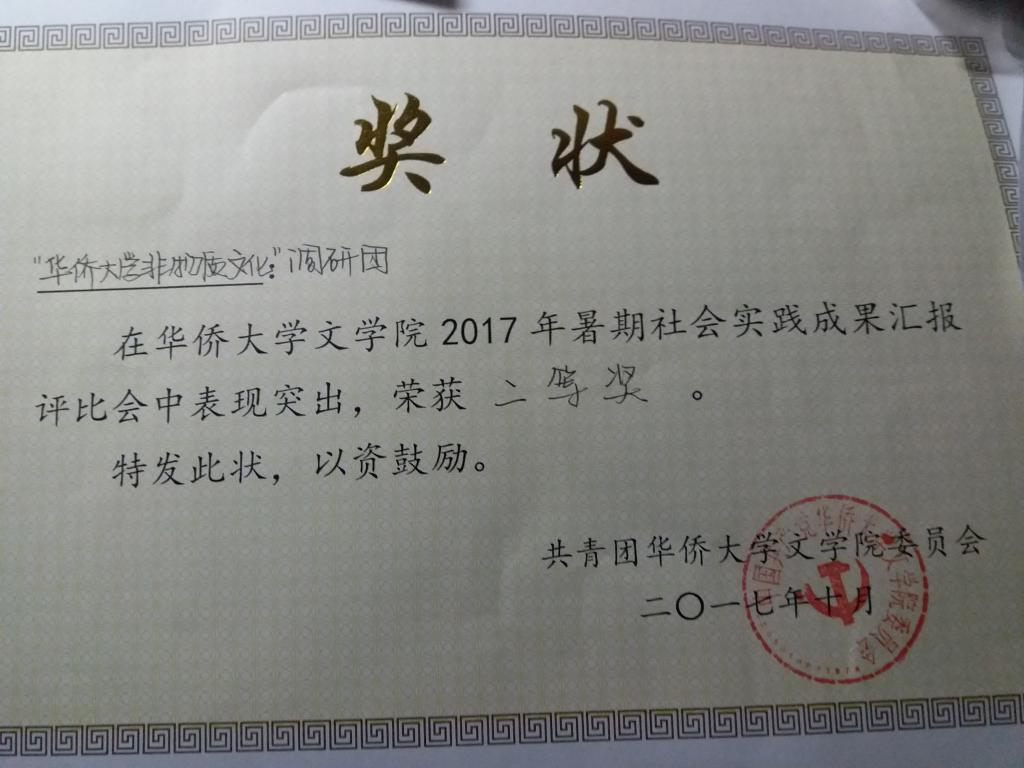 奖 状
"华侨大学非物质文化:"调研团
在华侨大学文学院 2017 年暑期社会实践成果汇报
评比会中表现突出，荣获 二等奖 。
特发此状，以资鼓励。
共青团华侨大学文学院委员会
二〇一七年十月